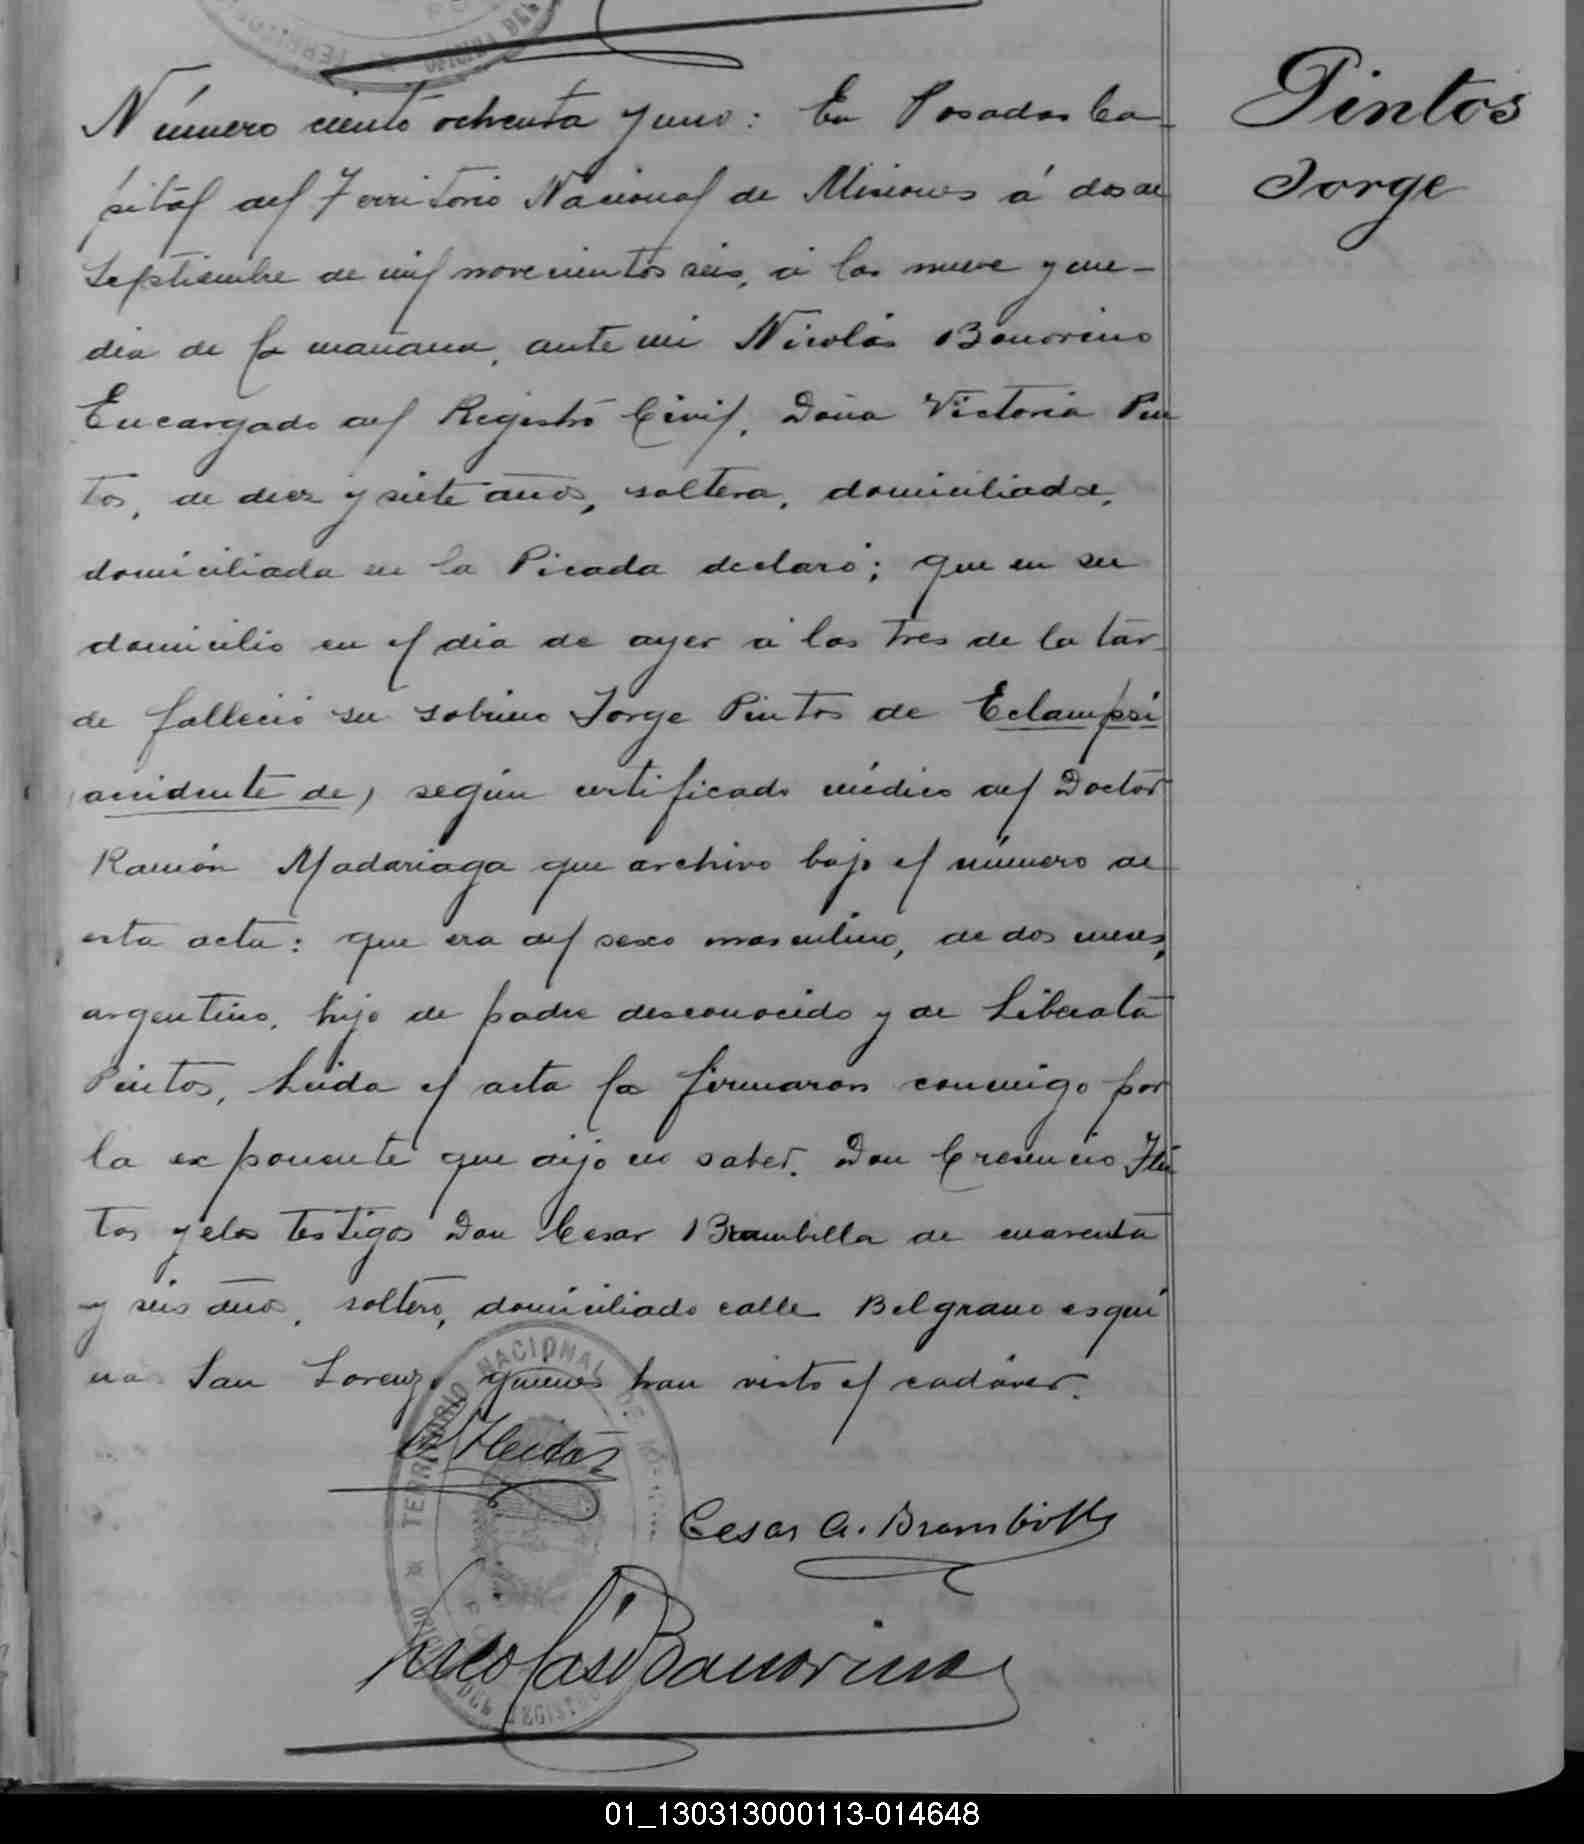 Pintos
Jorge
Número ciento ochenta y uno: En Posadas Ca-
pital del Territorio Nacional de Misiones á dos de
Septiembre de mil novecientos seis, á las nueve y me-
dia de la mañana, ante mi Nicolás Bonorino
Encargado del Registro Civil, Doña Victoria Pin
tos, de diez y siete años, soltera, domiciliada,
domiciliada en la Picada declaró; que en su
domicilio en el dia de ayer á las tres de la tar-
de falleció su sobrino Jorge Pintos de Eclampsi
(accidente de) según certificado médico del Doctor
Ramón Madariaga que archivo bajo el número de
esta acta: que era del sexo masculino, de dos meses,
argentino, hijo de padre desconocido y de Liberata
Pintos, Leida el acta la firmaron conmigo por
la exponente que dijo no saber. Don Cresencio
tas y los testigos Don Cesar Brambilla de cuarenta
y seis años, soltero, domiciliado calle Belgrano esqui
na San Lorenzo quienes han visto el cadáver.
Cesar A. Brambilla
Nicolás Bonorino
TERRITORIO NACIONAL DE
DEL REGISTRO
01_130313000113-014648